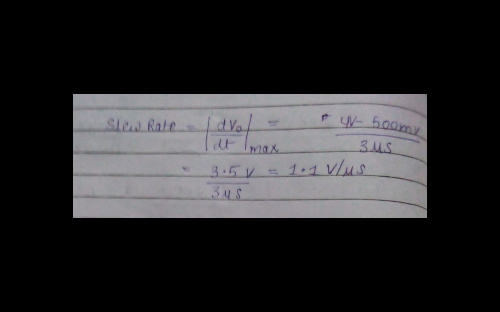 Slew Rate = |dVo/dt|max = 4V- 500mV/3μs
= 3.5 V/3μs = 1.1 V/μs